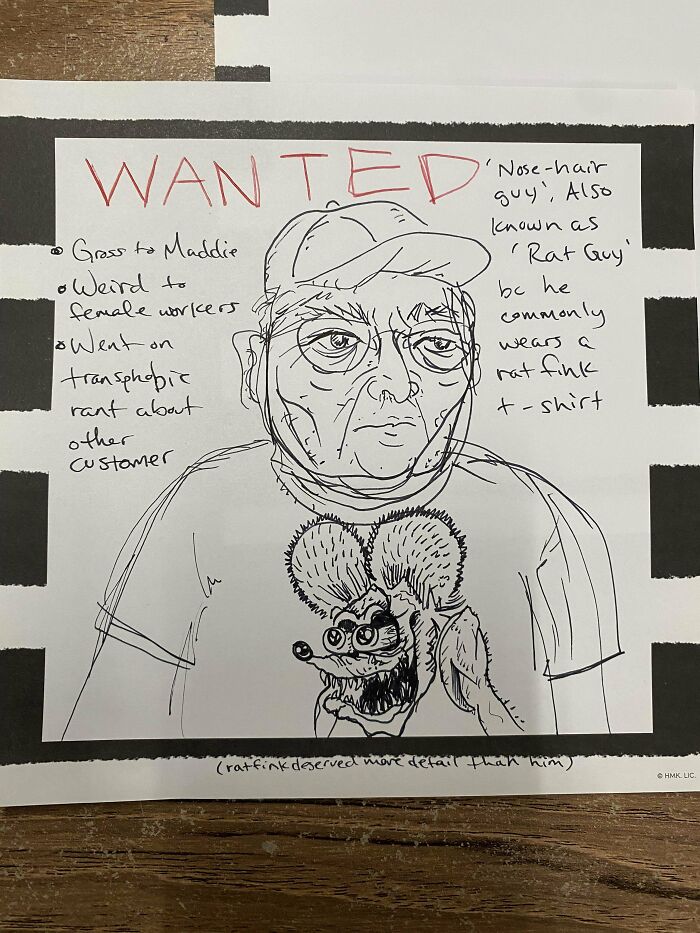 WANTED
• Gross to Maddie
• Weird to
female workers
• Went on
transphobic
rant about
other
customer
'Nose-hair
guy', Also
known as
'Rat Guy'
bc he
commonly
wears a
rat fink
t-shirt
(ratfink deserved more detail than him)
© HMK. LIC.